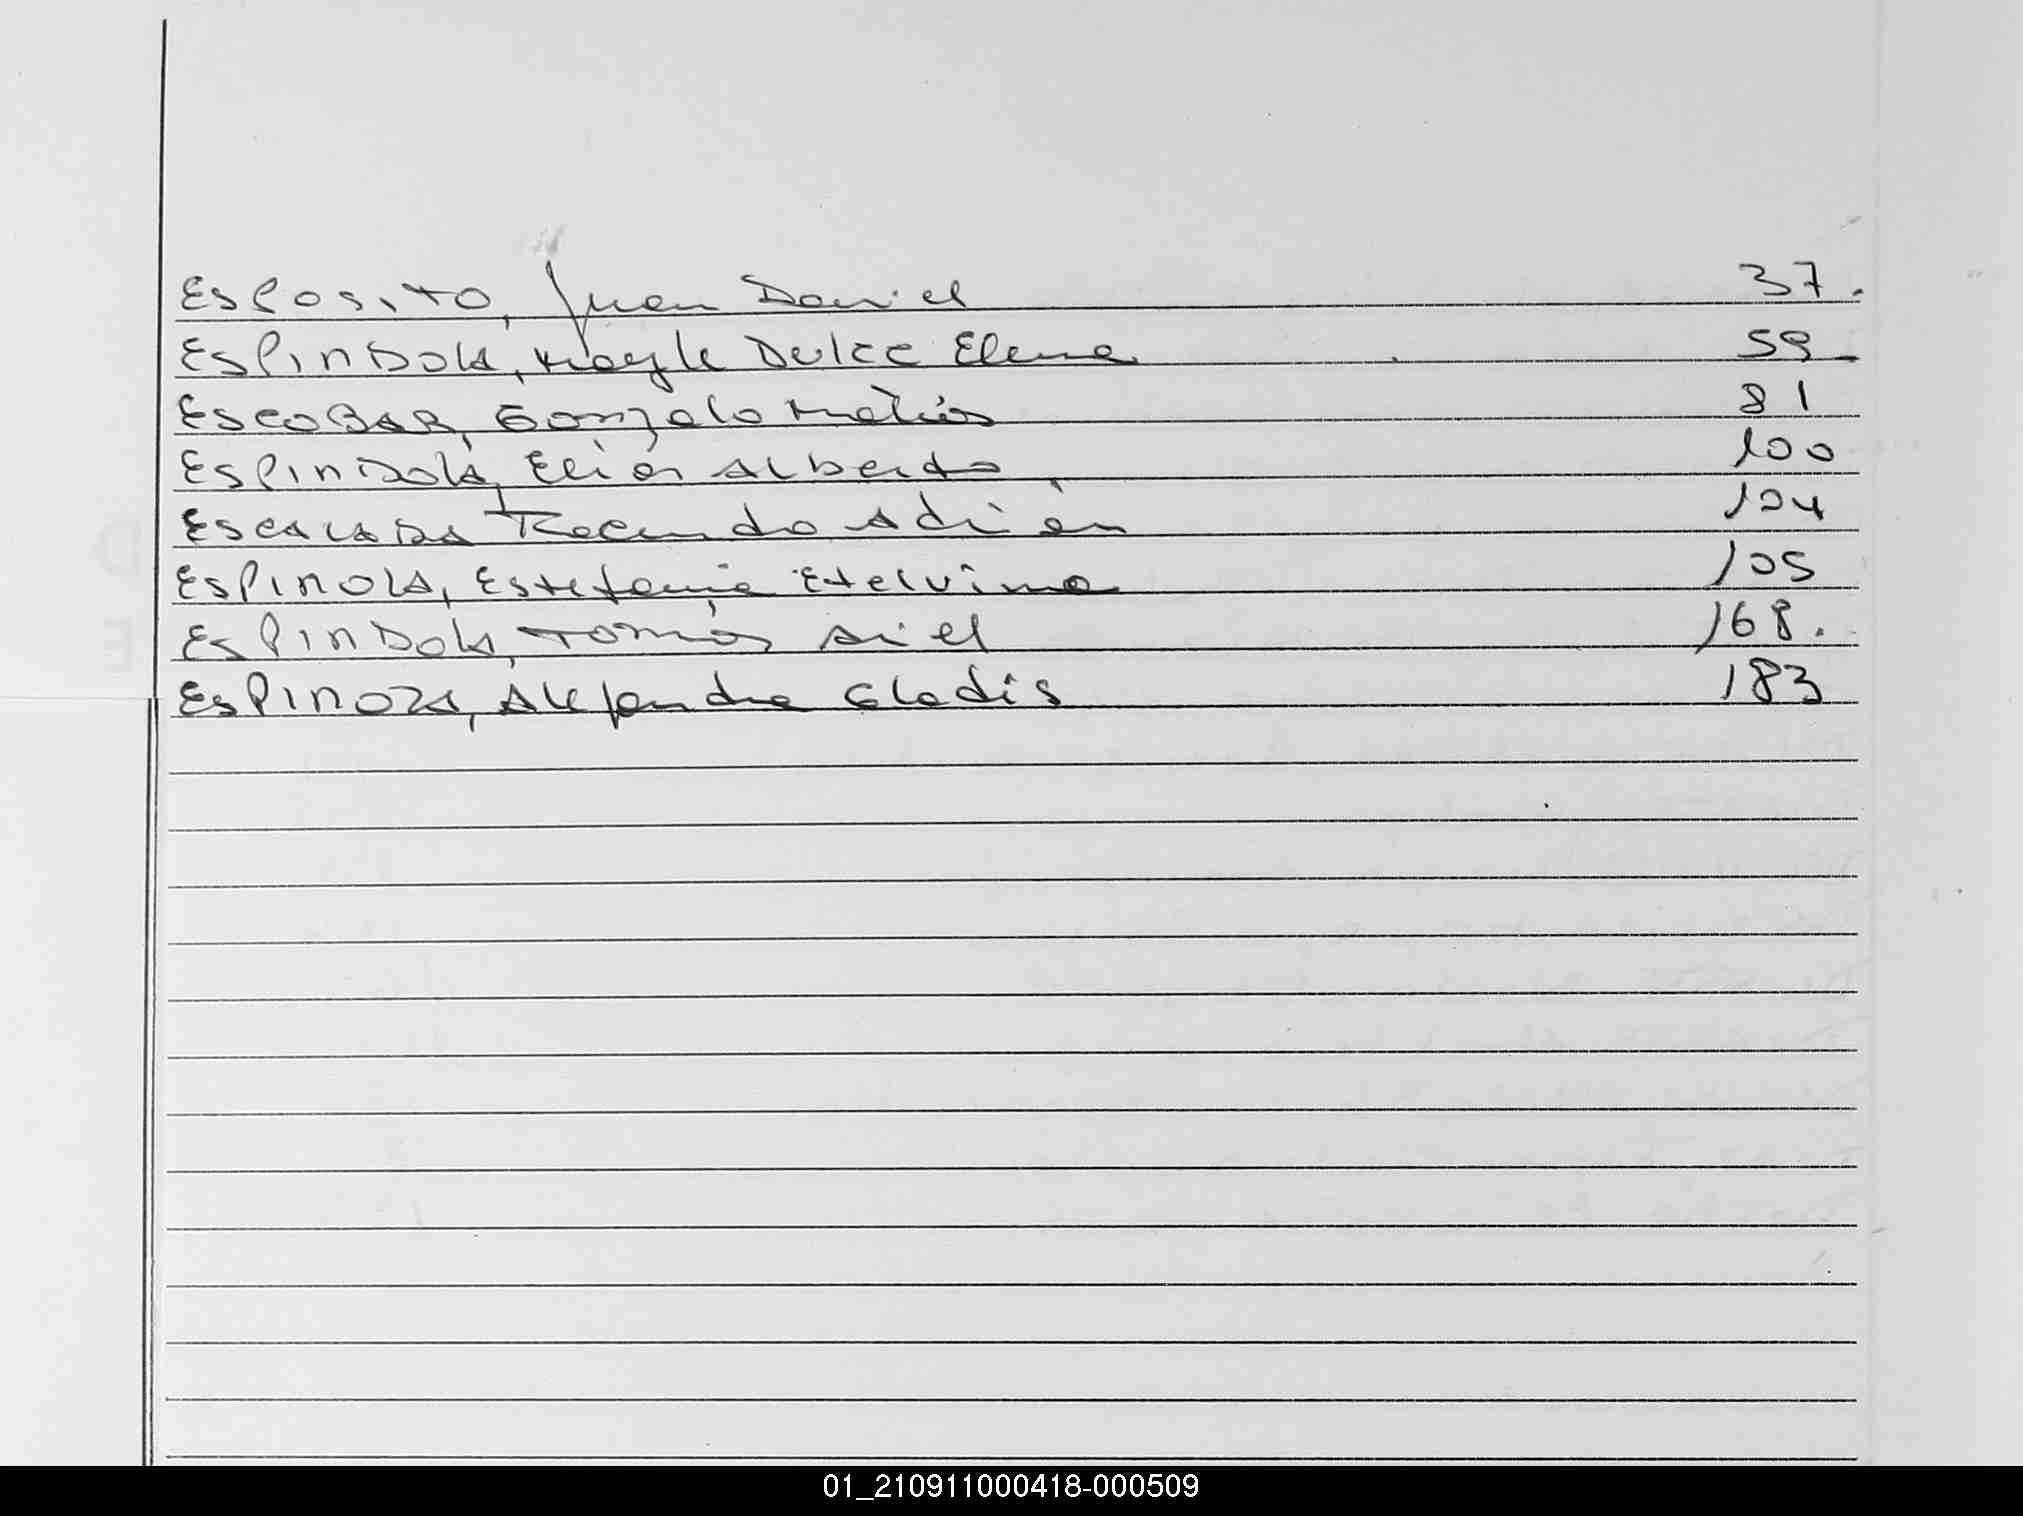 Esposito, Juan Daniel 37.
Espindola, Mayle Dulce Elena 59
Escobar, Gonzalo Matías 81
Espindola, Elias Alberto 100
Escalada Facundo Adrián 104
Espinola, Estefania Etelvina 105
Espindola, Tomás Ariel 168.
Espinoza, Alejandra Gladis 183
01_210911000418-000509